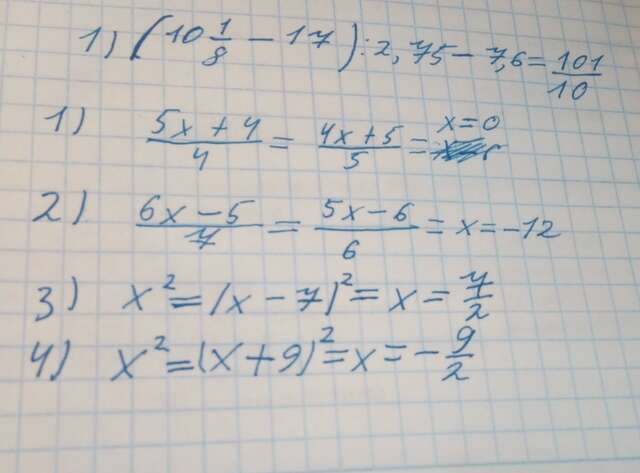 1) (10 1/8 - 17) : 2,75 - 7,6 = 101/10
1) (5x + 4)/4 = (4x + 5)/5 = x = 0
2) (6x - 5)/7 = (5x - 6)/6 = x = -12
3) x² = (x - 7)² = x = 7/2
4) x² = (x + 9)² = x = - 9/2